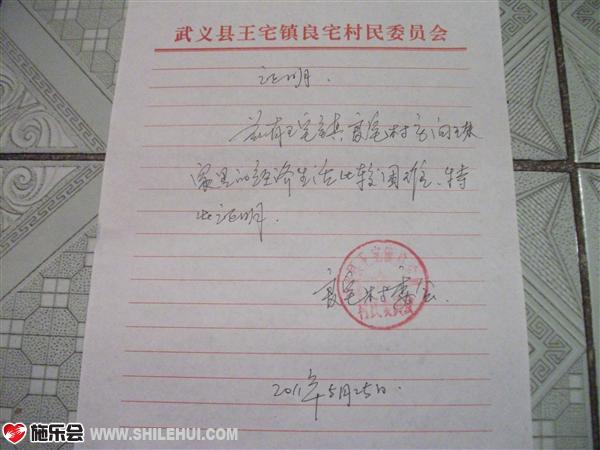 武义县王宅镇良宅村民委员会
证明.
兹有王宅镇良宅村
家里的经济生活比较困难、特
此证明.
良宅村委会.
2011年5月25日.
施乐会 WWW.SHILEHUI.COM